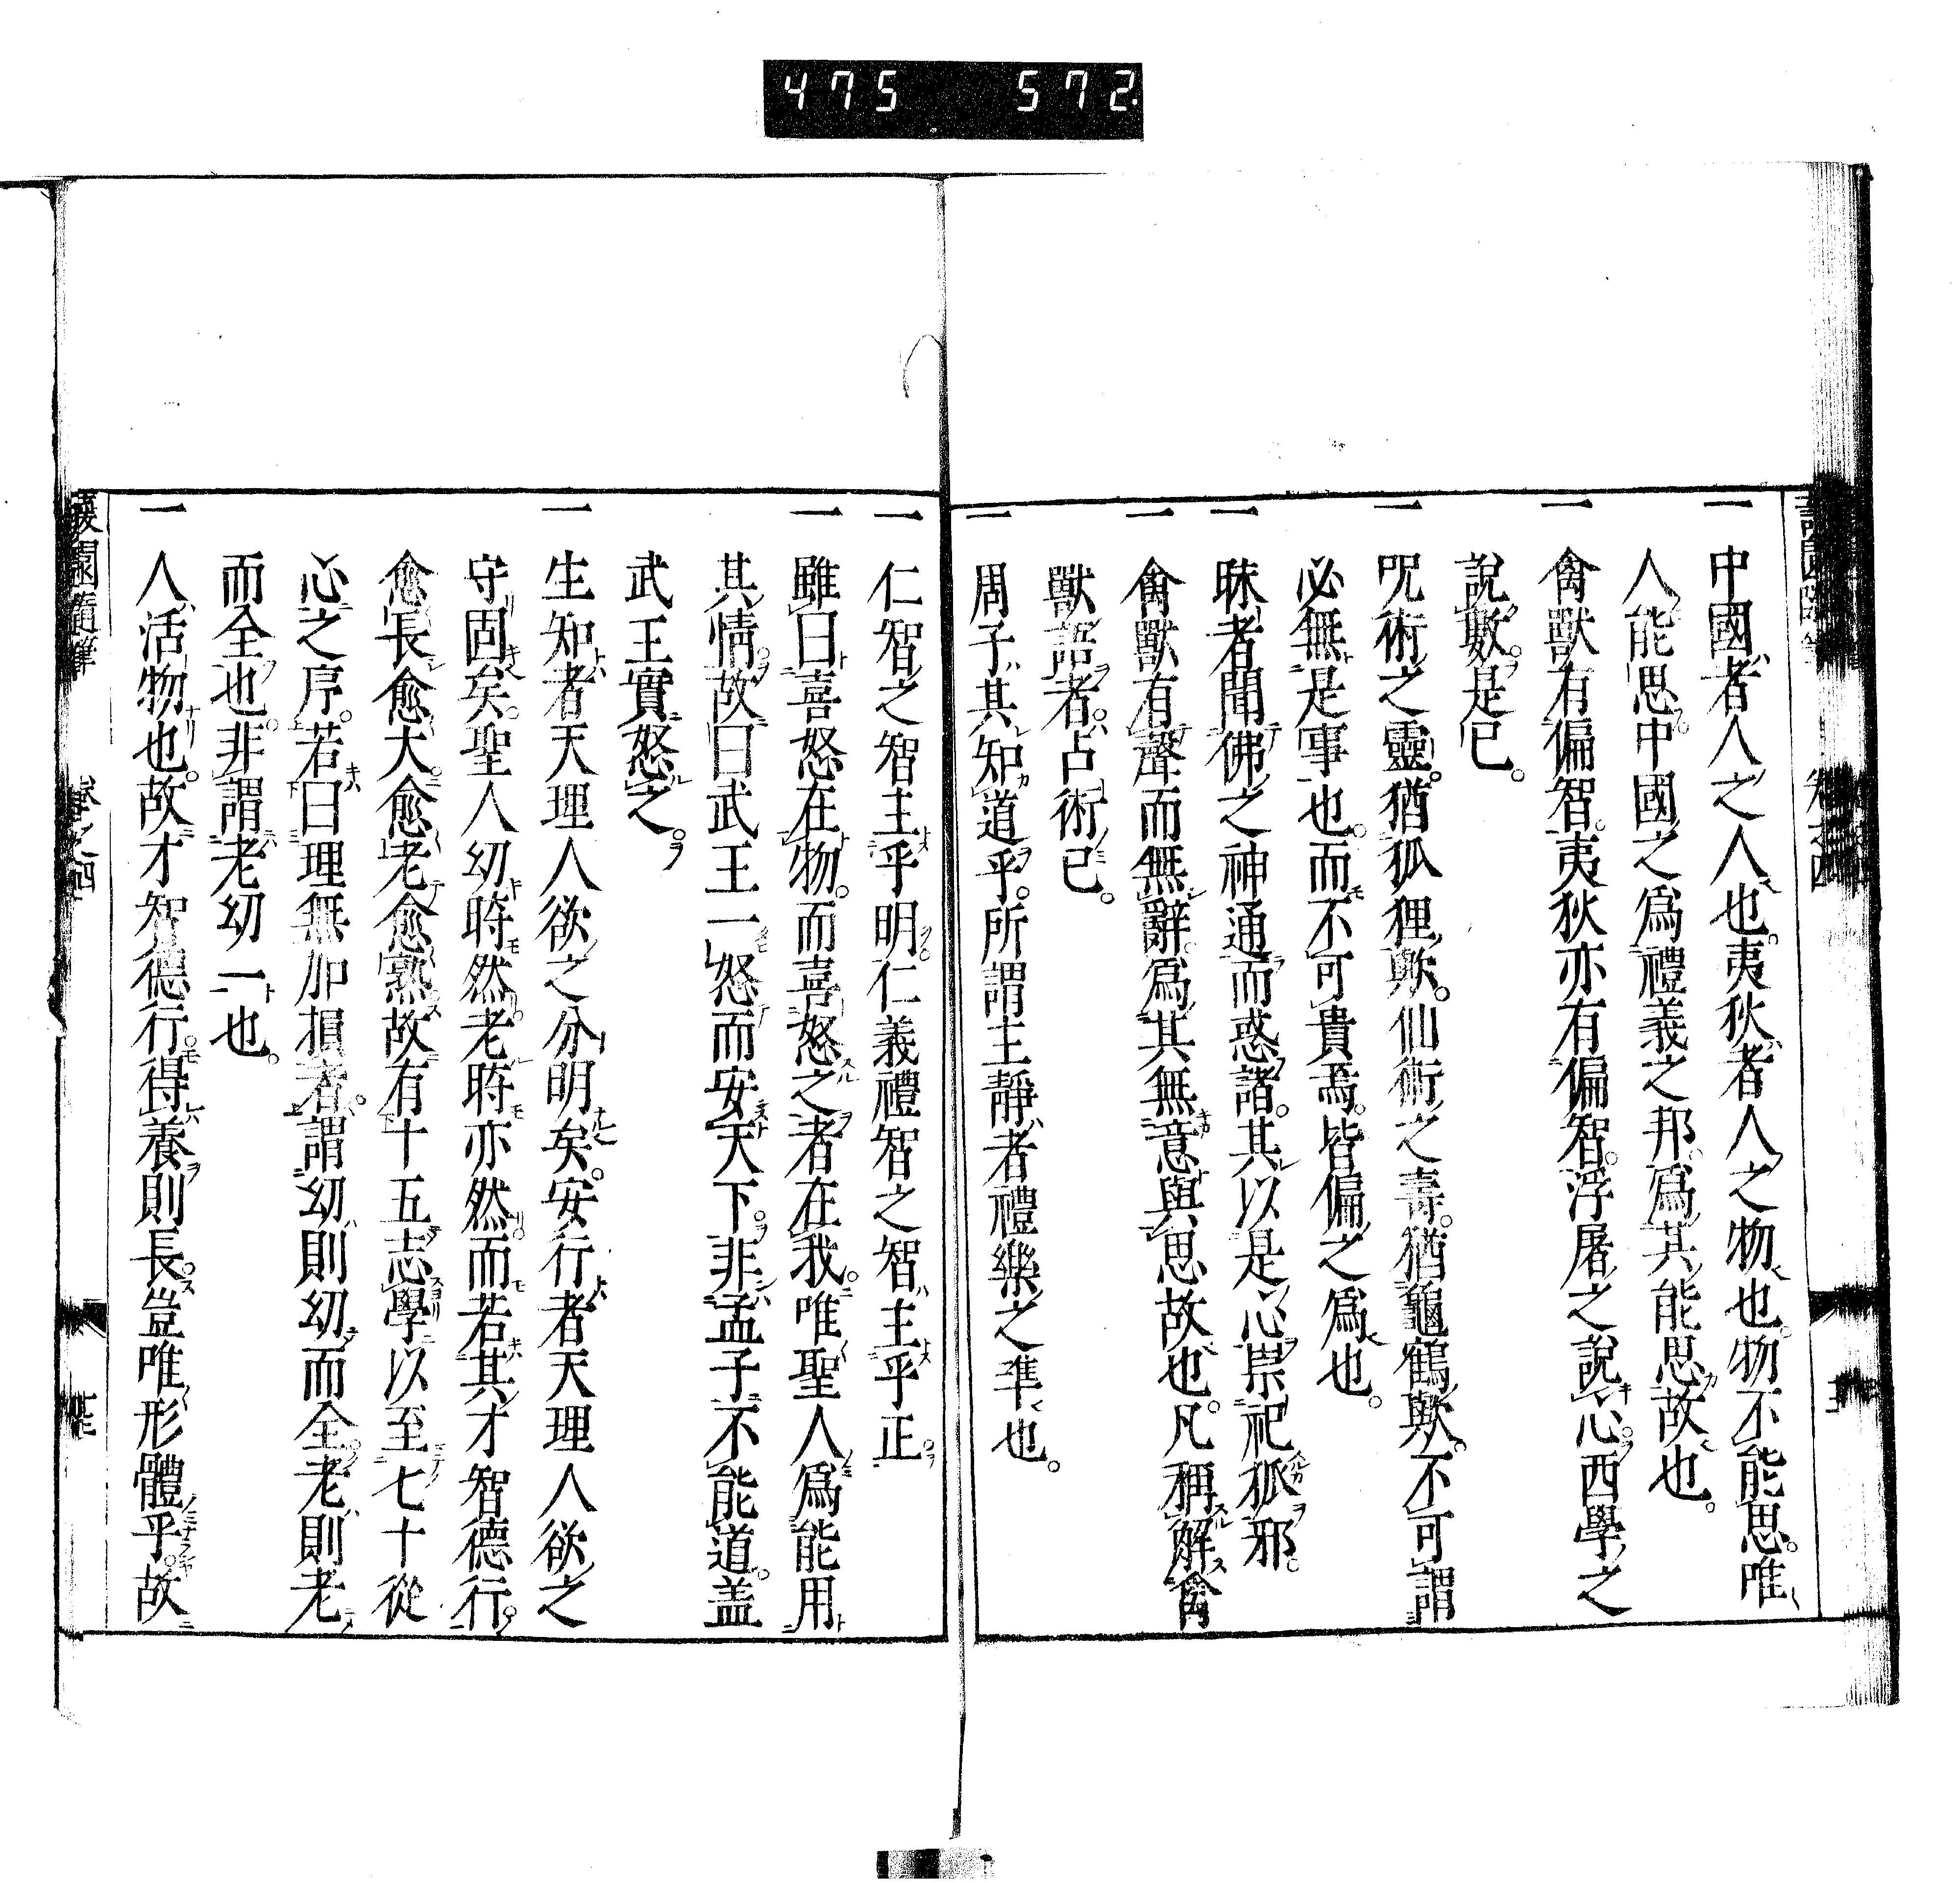 475 572
一 中國者人之人也。夷狄者人之物也。物不能思。唯
人能思。中國之爲禮義之邦。爲其能思故也。
一 禽獸有偏智。夷狄亦有偏智。浮屠之說心。西學之
說數。是已。
一 呪術之靈。猶狐狸歟。仙術之壽。猶龜鶴歟。不可謂
必無是事也。而不可貴焉。皆偏之爲也。
一 昧者聞佛之神通而惑諸。其以是心祟祀狐邪。
一 禽獸有聲而無辭。爲其無意與思故也。凡稱解禽
獸語者。占術已。
一 周子其知道乎。所謂主靜者禮樂之準也。
一 仁智之智主乎明。仁義禮智之智主乎正。
一 雖曰喜怒在物。而喜怒之者在我。唯聖人爲能用
其情。故曰武王一怒而安天下。非孟子不能道。盖
武王實怒之。
一 生知者天理人欲之分明矣。安行者天理人欲之
守固矣。聖人幼時然。老時亦然。而若其才智德行。
愈長愈大。愈老愈熟。故有十五志學以至七十從
心之序。若曰理無加損者。謂幼則幼而全。老則老
而全也。非謂老幼一也。
一 人活物也。故才智德行。得養則長。豈唯形體乎。故
隨筆 卷之四